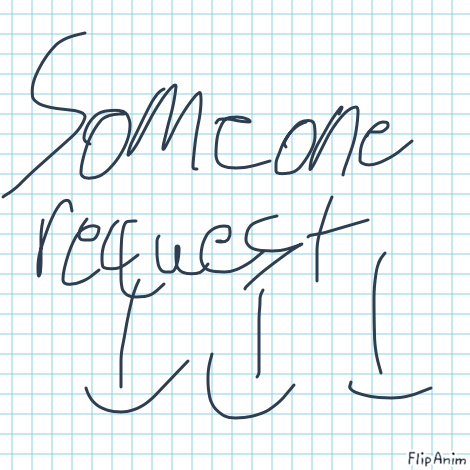 Someone
request
FlipAnim